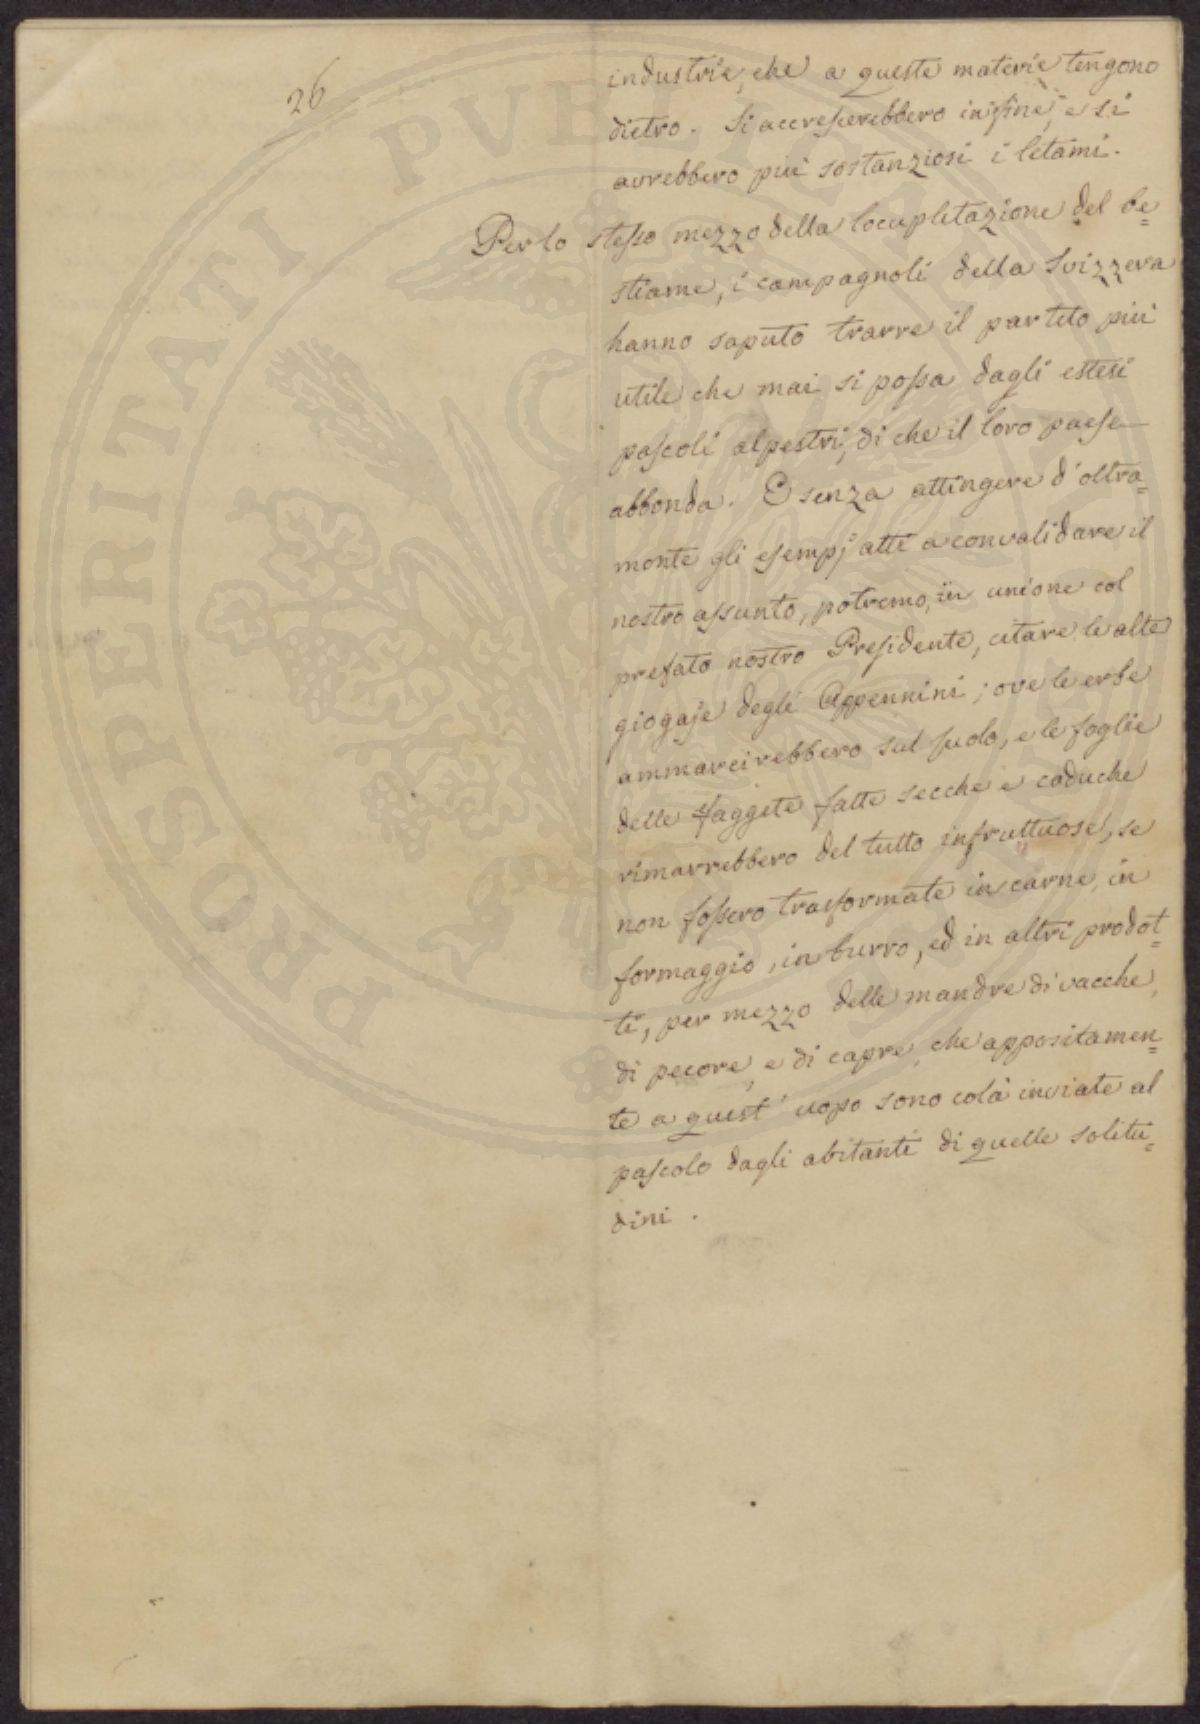 26
industrie, che a queste materie tengono
dietro. Si accrescerebbero infine, e si
avrebbero più sostanziosi i letami.
Per lo stesso mezzo della locupletazione del be=
stiame, i campagnoli della Svizzera
hanno saputo trarre il partito più
utile che mai si possa dagli estesi
pascoli alpestri, di che il loro paese
abbonda. E senza attingere d'oltra=
monte gli esempj atti a convalidare il
nostro assunto, potremo, in unione col
prefato nostro Presidente, citare le alte
giogaje degli Appennini; ove le erbe
ammarcirebbero sul suolo, e le foglie
delle faggete fatte secche e caduche
rimarrebbero del tutto infruttuose, se
non fossero trasformate in carne, in
formaggio, in burro, ed in altri prodot=
ti, per mezzo delle mandre di vacche,
di pecore, e di capre, che appositamen=
te a quest'uopo sono colà inviate al
pascolo dagli abitanti di quelle solitu=
dini.
PROSPERITATI PVBLICAE